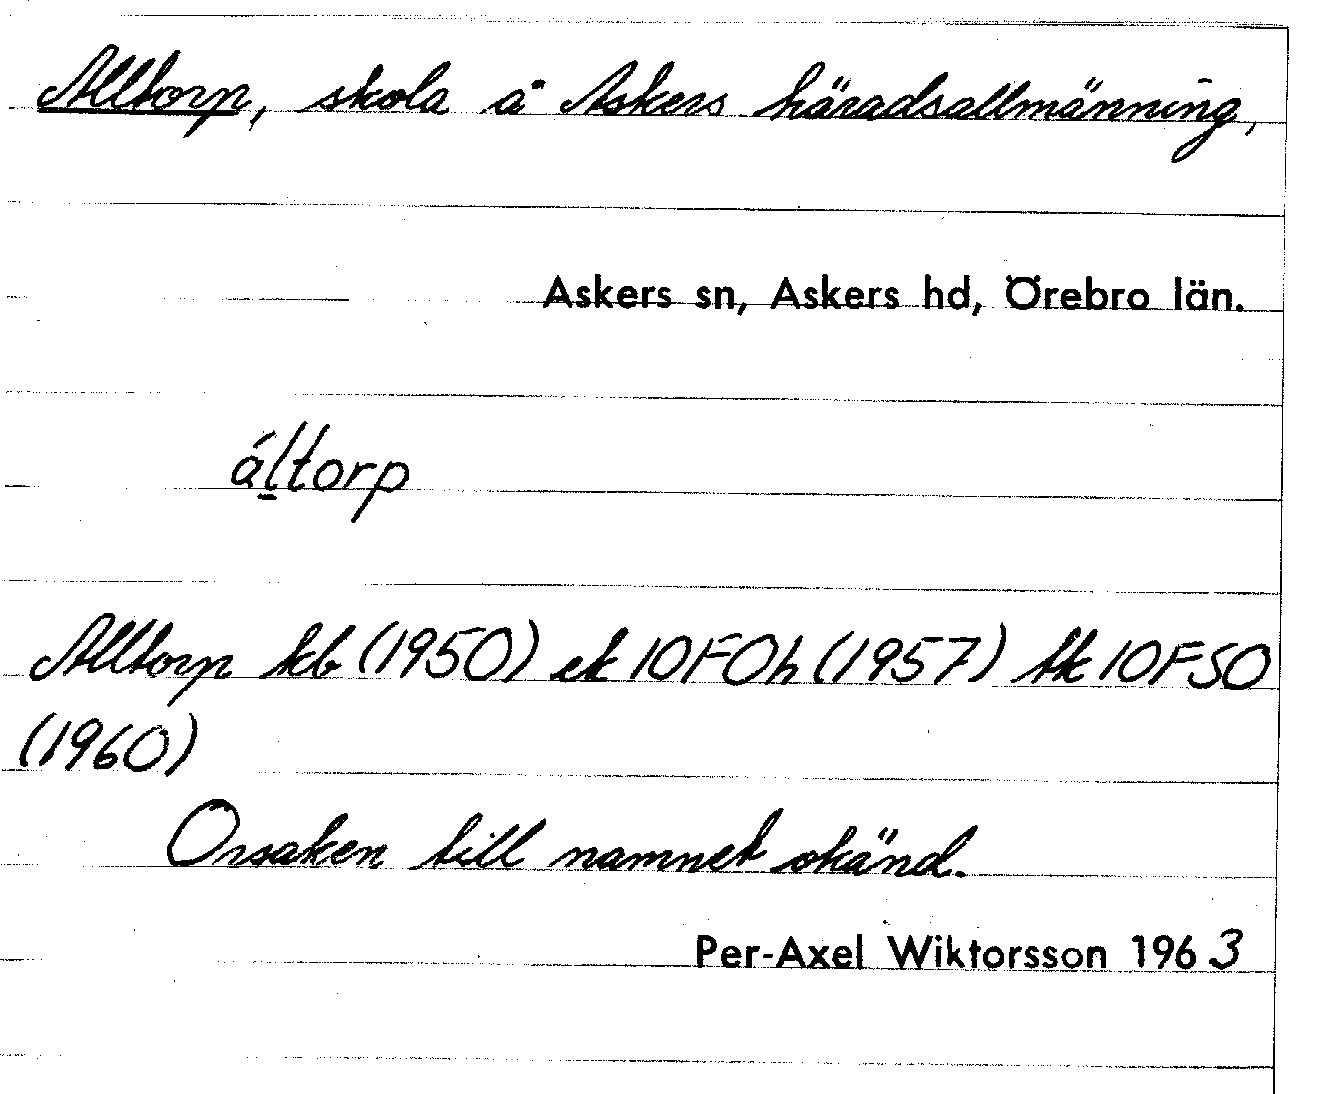 Alltorp, skola å Askers häradsallmänning,
Askers sn, Askers hd, Örebro län.
ál̲torp
Alltorp kb (1950) ek 10F0h (1957) tk 10FSO
(1960)
Orsaken till namnet okänd.
Per-Axel Wiktorsson 1963